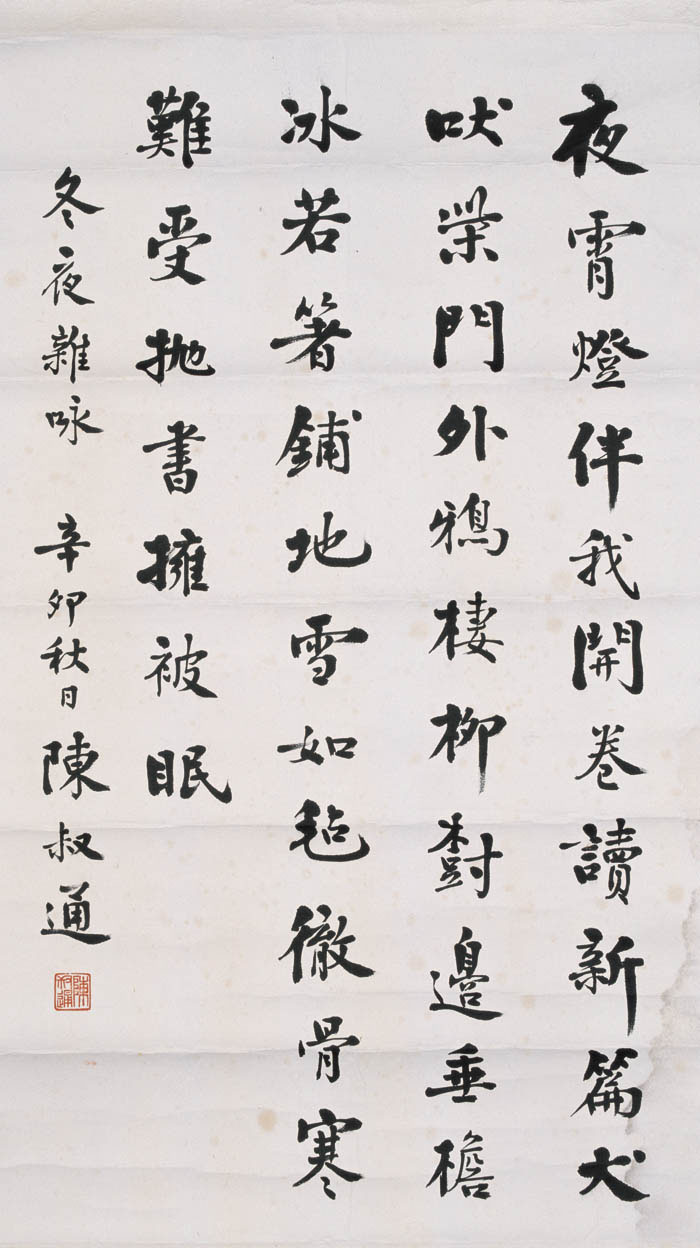 夜霄燈伴我開卷讀新篇犬
吠柴門外鴉棲柳樹邊垂檐
冰若箸鋪地雪如毡徹骨寒
難受抛書擁被眠
冬夜雜咏 辛卯秋日陳叔通
陳叔通